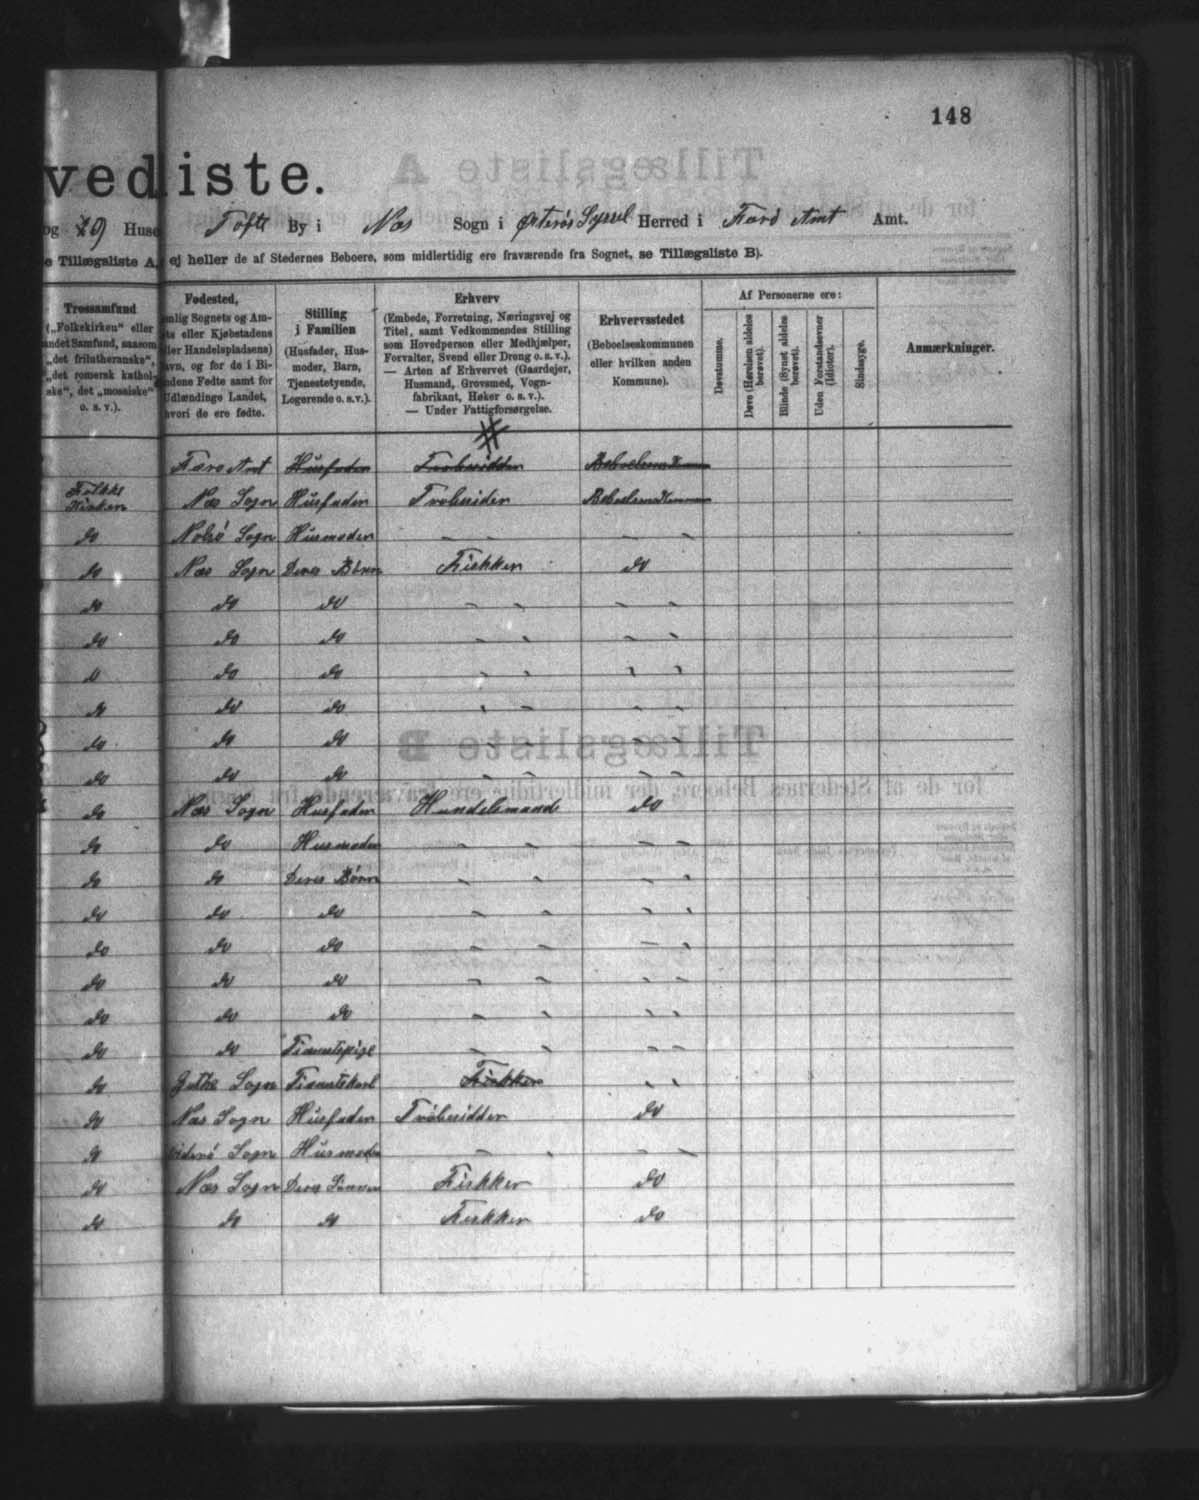 148
vediste.
og 29 Huse Tofte By i Næs Sogn i Østerøs Syssel Herred i Færø Amt Amt.
e Tillægsliste A, ej heller de af Stedernes Beboere, som midlertidig ere fraværende fra Sognet, se Tillægsliste B).
Trossamfund
(„Folkekirken“ eller
andet Samfund, saasom
„det frilutheranske“,
„det romersk kathol-
ske“, det „mosaiske“
o. s. v.).
Fødested,
nlig Sognets og Am-
ts eller Kjøbstadens
ller Handelspladsens)
avn, og for de i Bi-
ndene Fødte samt for
Udlændinge Landet,
hvori de ere fødte.
Stilling
i Familien
(Husfader, Hus-
moder, Barn,
Tjenestetyende,
Logerende o. s. v.).
Erhverv
(Embede, Forretning, Næringsvej og
Titel, samt Vedkommendes Stilling
som Hovedperson eller Medhjælper,
Forvalter, Svend eller Dreng o. s. v.).
— Arten af Erhvervet (Gaardejer,
Husmand, Grovsmed, Vogn-
fabrikant, Høker o. s. v.).
— Under Fattigforsørgelse.
Erhvervsstedet
(Beboelseskommunen
eller hvilken anden
Kommune).
Af Personerne ere:
Døvstumme.
Døve (Hørelsen aldeles
berøvet).
Blinde (Synet aldeles
berøvet).
Uden Forstandsevner
(Idioter).
Sindssyge.
Anmærkninger.
Færø Amt Husfader
Folke
Kirken Næs Sogn Husfader
do Nolsø Sogn Husmoder - - - -
do Næs Sogn Deres Børn Fiskker do
do do do - - - -
do do do - - - -
do do do - - - -
do do do - - - -
do do do - - - -
do do do - - - -
do Næs Sogn Husfader Handelsmand do
do do Husmoder - - - -
do do Deres Børn - - - -
do do do - - - -
do do do - - - -
do do do - - - -
do do do - - - -
do do Tienistepige - - - -
do Gøthe Sogn Tienistekarl Fiskker - -
do Næs Sogn Husfader do
do Sogn Husmoder - - - -
do Næs Sogn Deres Sønner Fiskker do
do do do Fiskker do